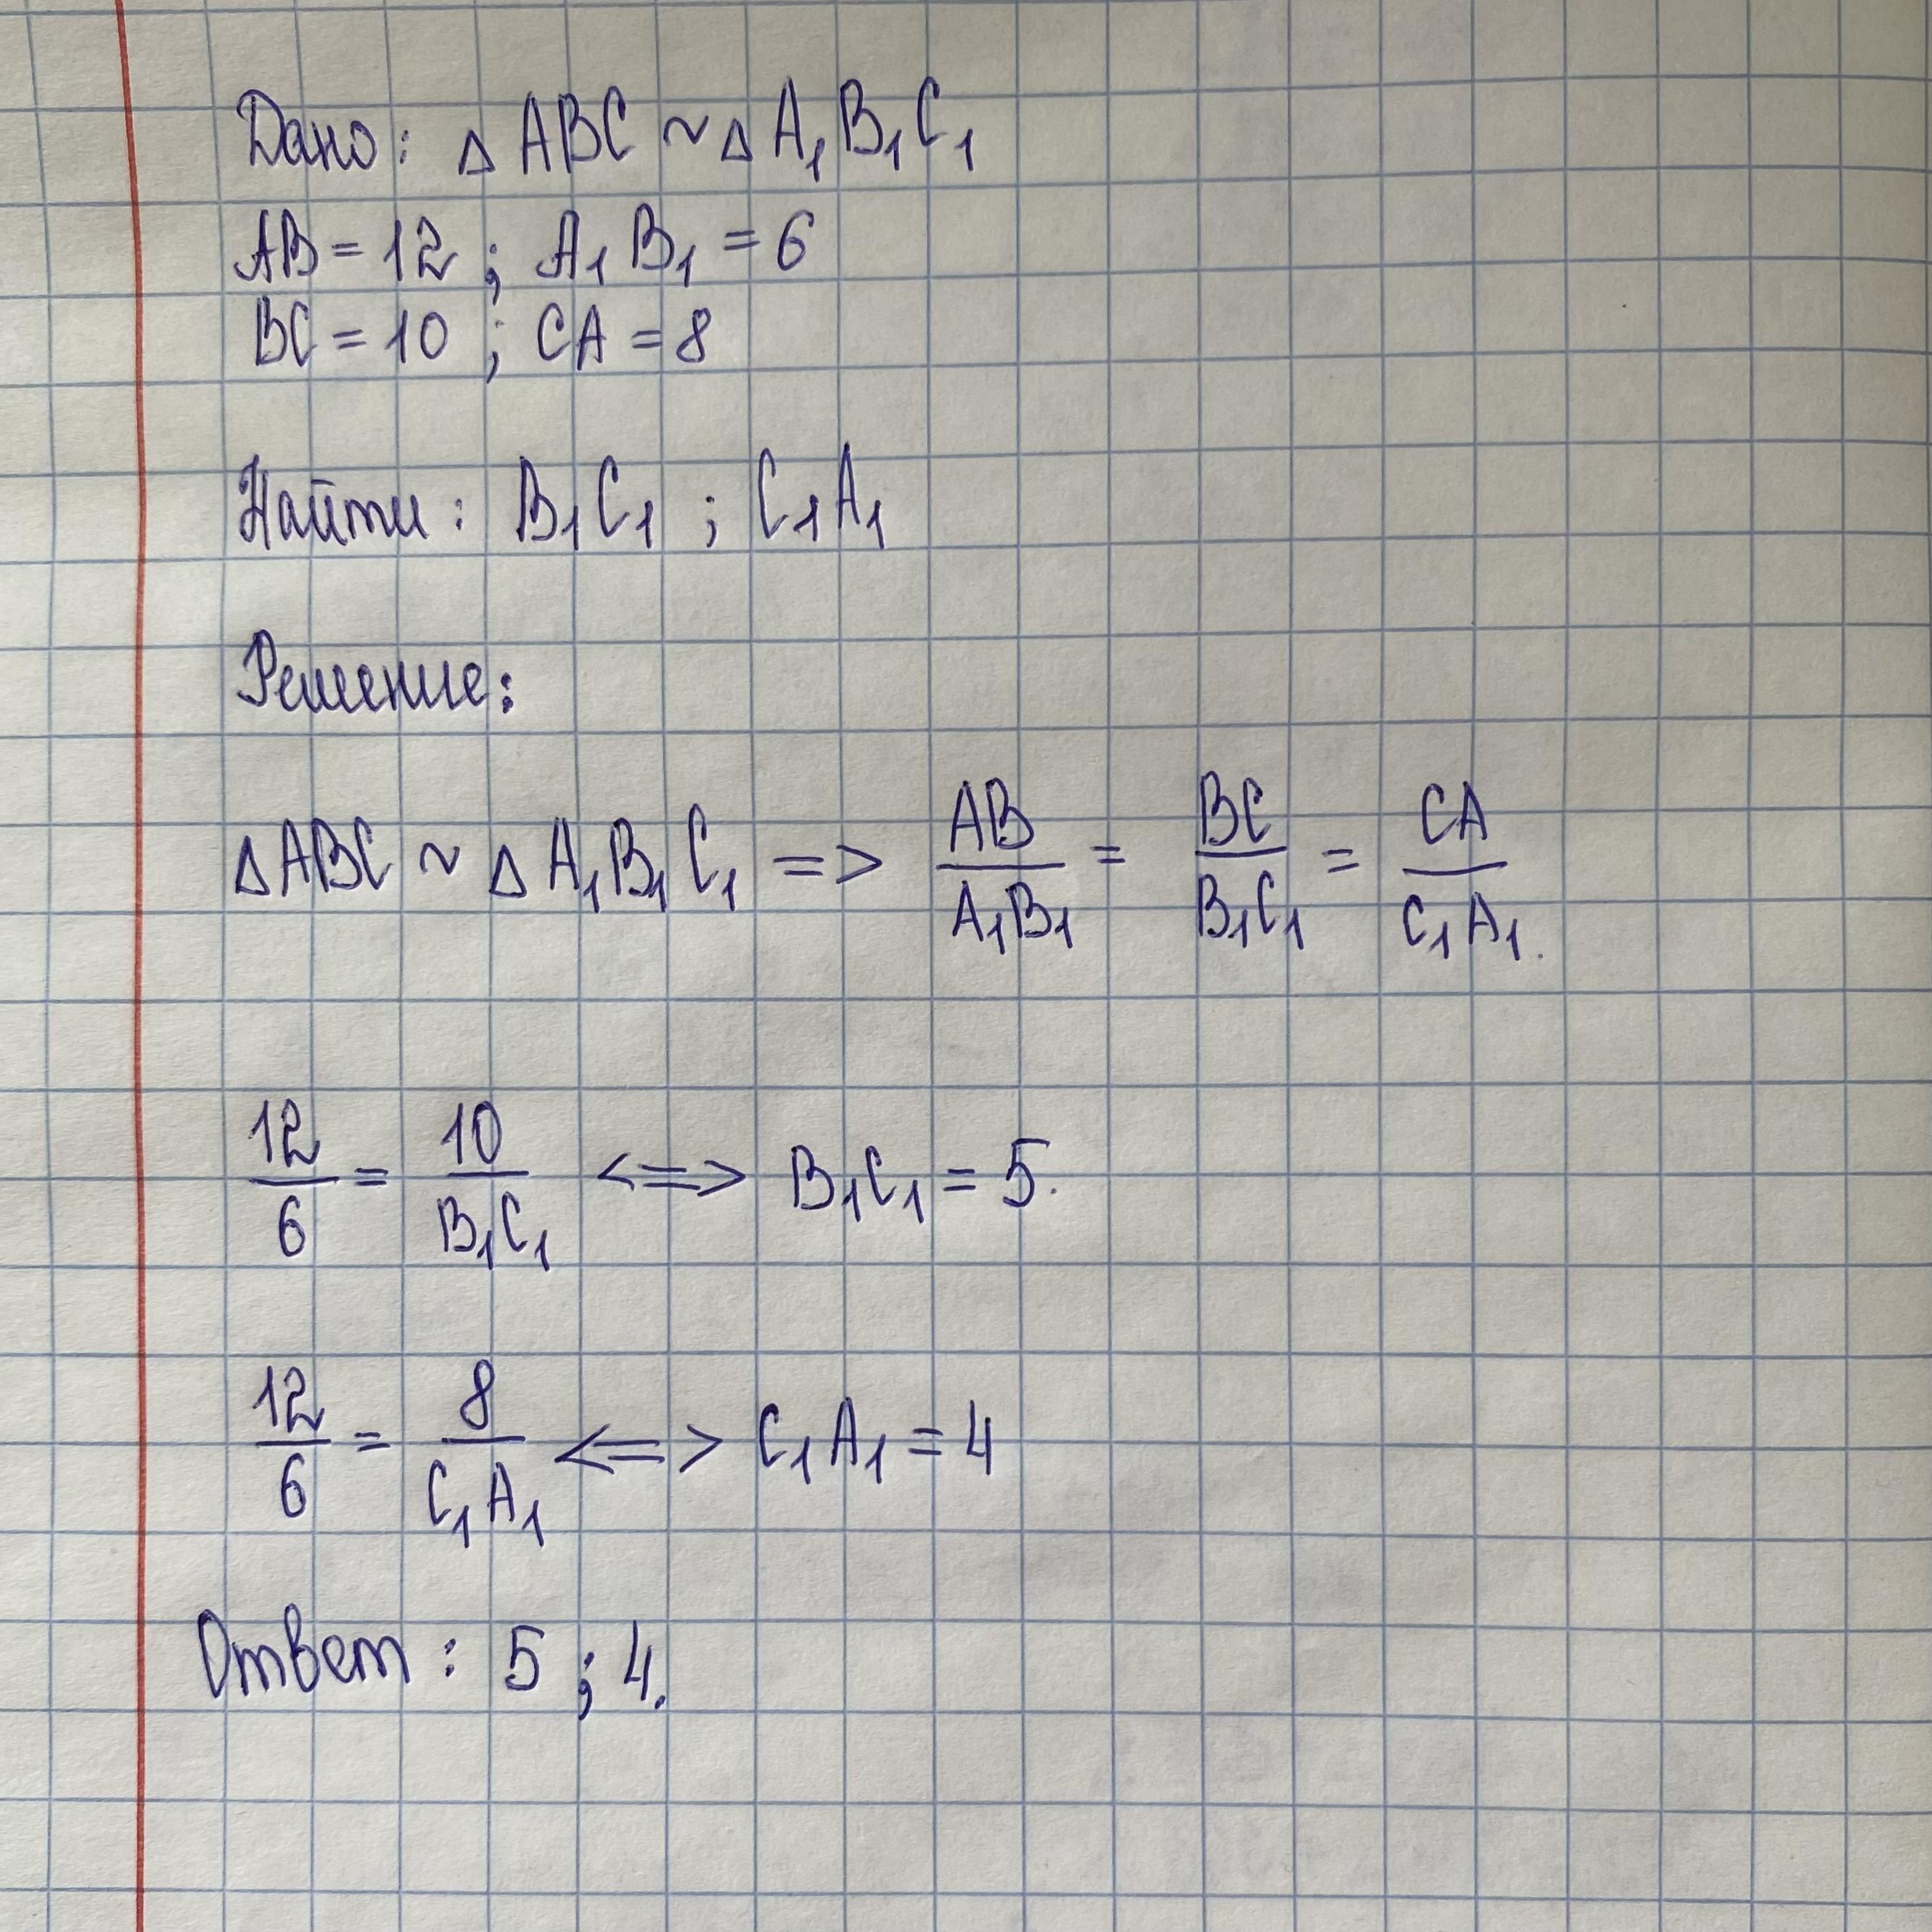 Дано: Δ ABC ~ Δ A₁B₁C₁
AB = 12 ; A₁B₁ = 6
BC = 10 ; CA = 8
Найти: B₁C₁ ; C₁A₁
Решение:
Δ ABC ~ Δ A₁B₁C₁ => AB/A₁B₁ = BC/B₁C₁ = CA/C₁A₁.
12/6 = 10/B₁C₁ <=> B₁C₁ = 5.
12/6 = 8/C₁A₁ <=> C₁A₁ = 4
Ответ: 5 ; 4.